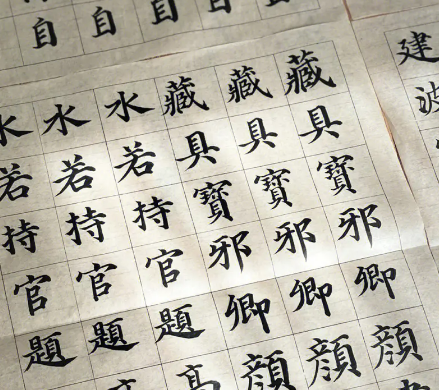 建波
藏具寶邪卿顏
藏具寶邪卿顏
藏具寶邪卿顏
水若持官題
水若持官題
水若持官題
自
自
自